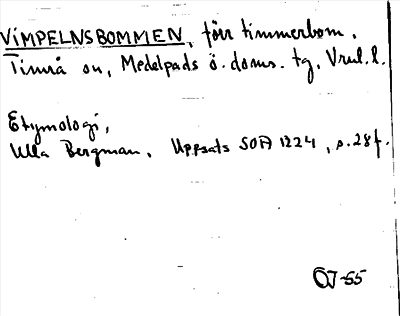 VIMPELNSBOMMEN, förr timmerbom.
Timrå sn, Medelpads ö. doms. tg, Vrul. l.
Etymologi,
Ulla Bergman. Uppsats SOA 1224, s. 28f.
ÖJ-55